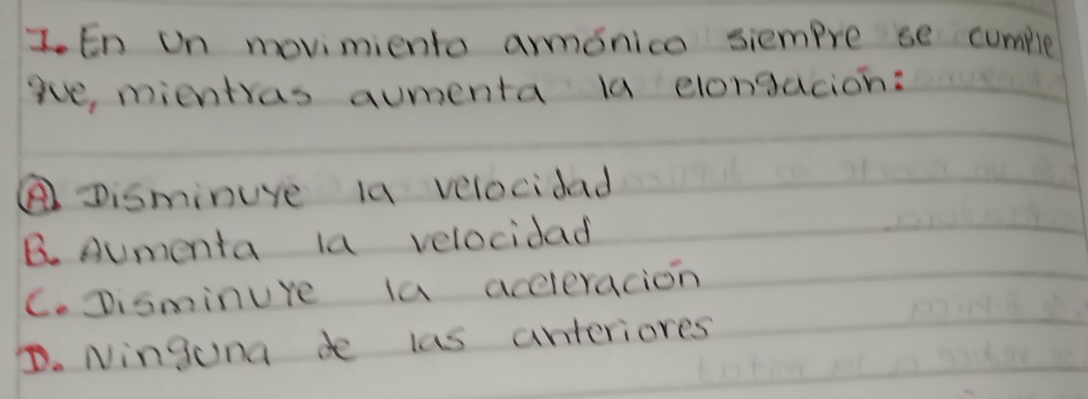 I. En un movimiento armónico siempre se cumple
que, mientras aumenta la elongación:
A. Disminuye la velocidad
B. Aumenta la velocidad
C. Disminuye la aceleración
D. Ninguna de las anteriores